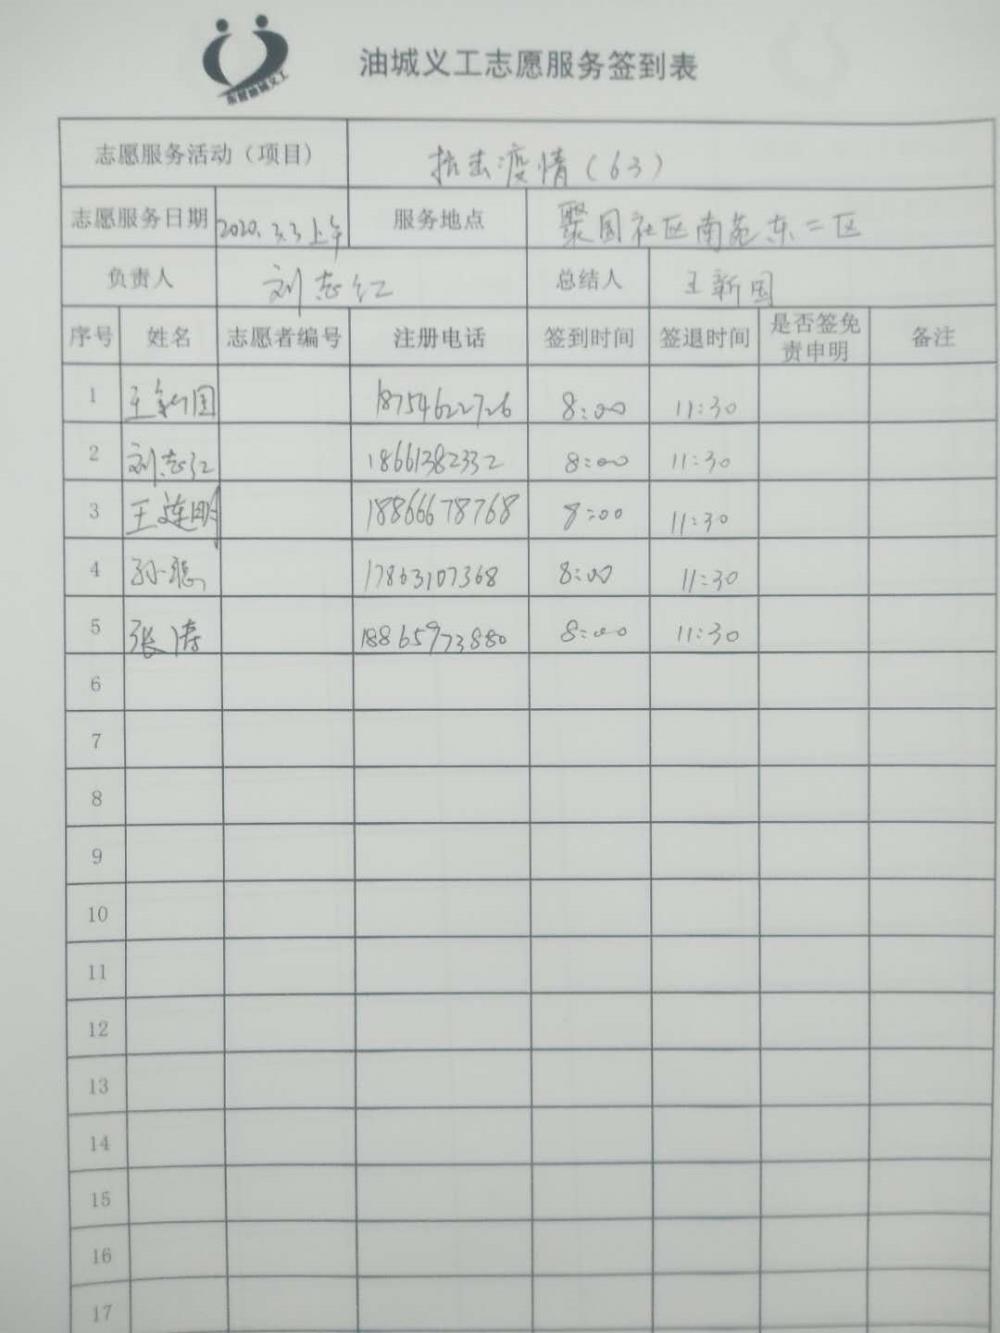 东营油城义工
油城义工志愿服务签到表
志愿服务活动（项目） 抗击疫情（63）
志愿服务日期 2020.3.3上午 服务地点 聚园社区南苑东二区
负责人 刘志红 总结人 王新国
序号 姓名 志愿者编号 注册电话 签到时间 签退时间 是否签免责申明 备注
1 王新国 18754622726 8:00 11:30
2 刘志红 18661382332 8:00 11:30
3 王连明 18866678768 8:00 11:30
4 孙聪 17863107368 8:00 11:30
5 张涛 18865973880 8:00 11:30
6
7
8
9
10
11
12
13
14
15
16
17